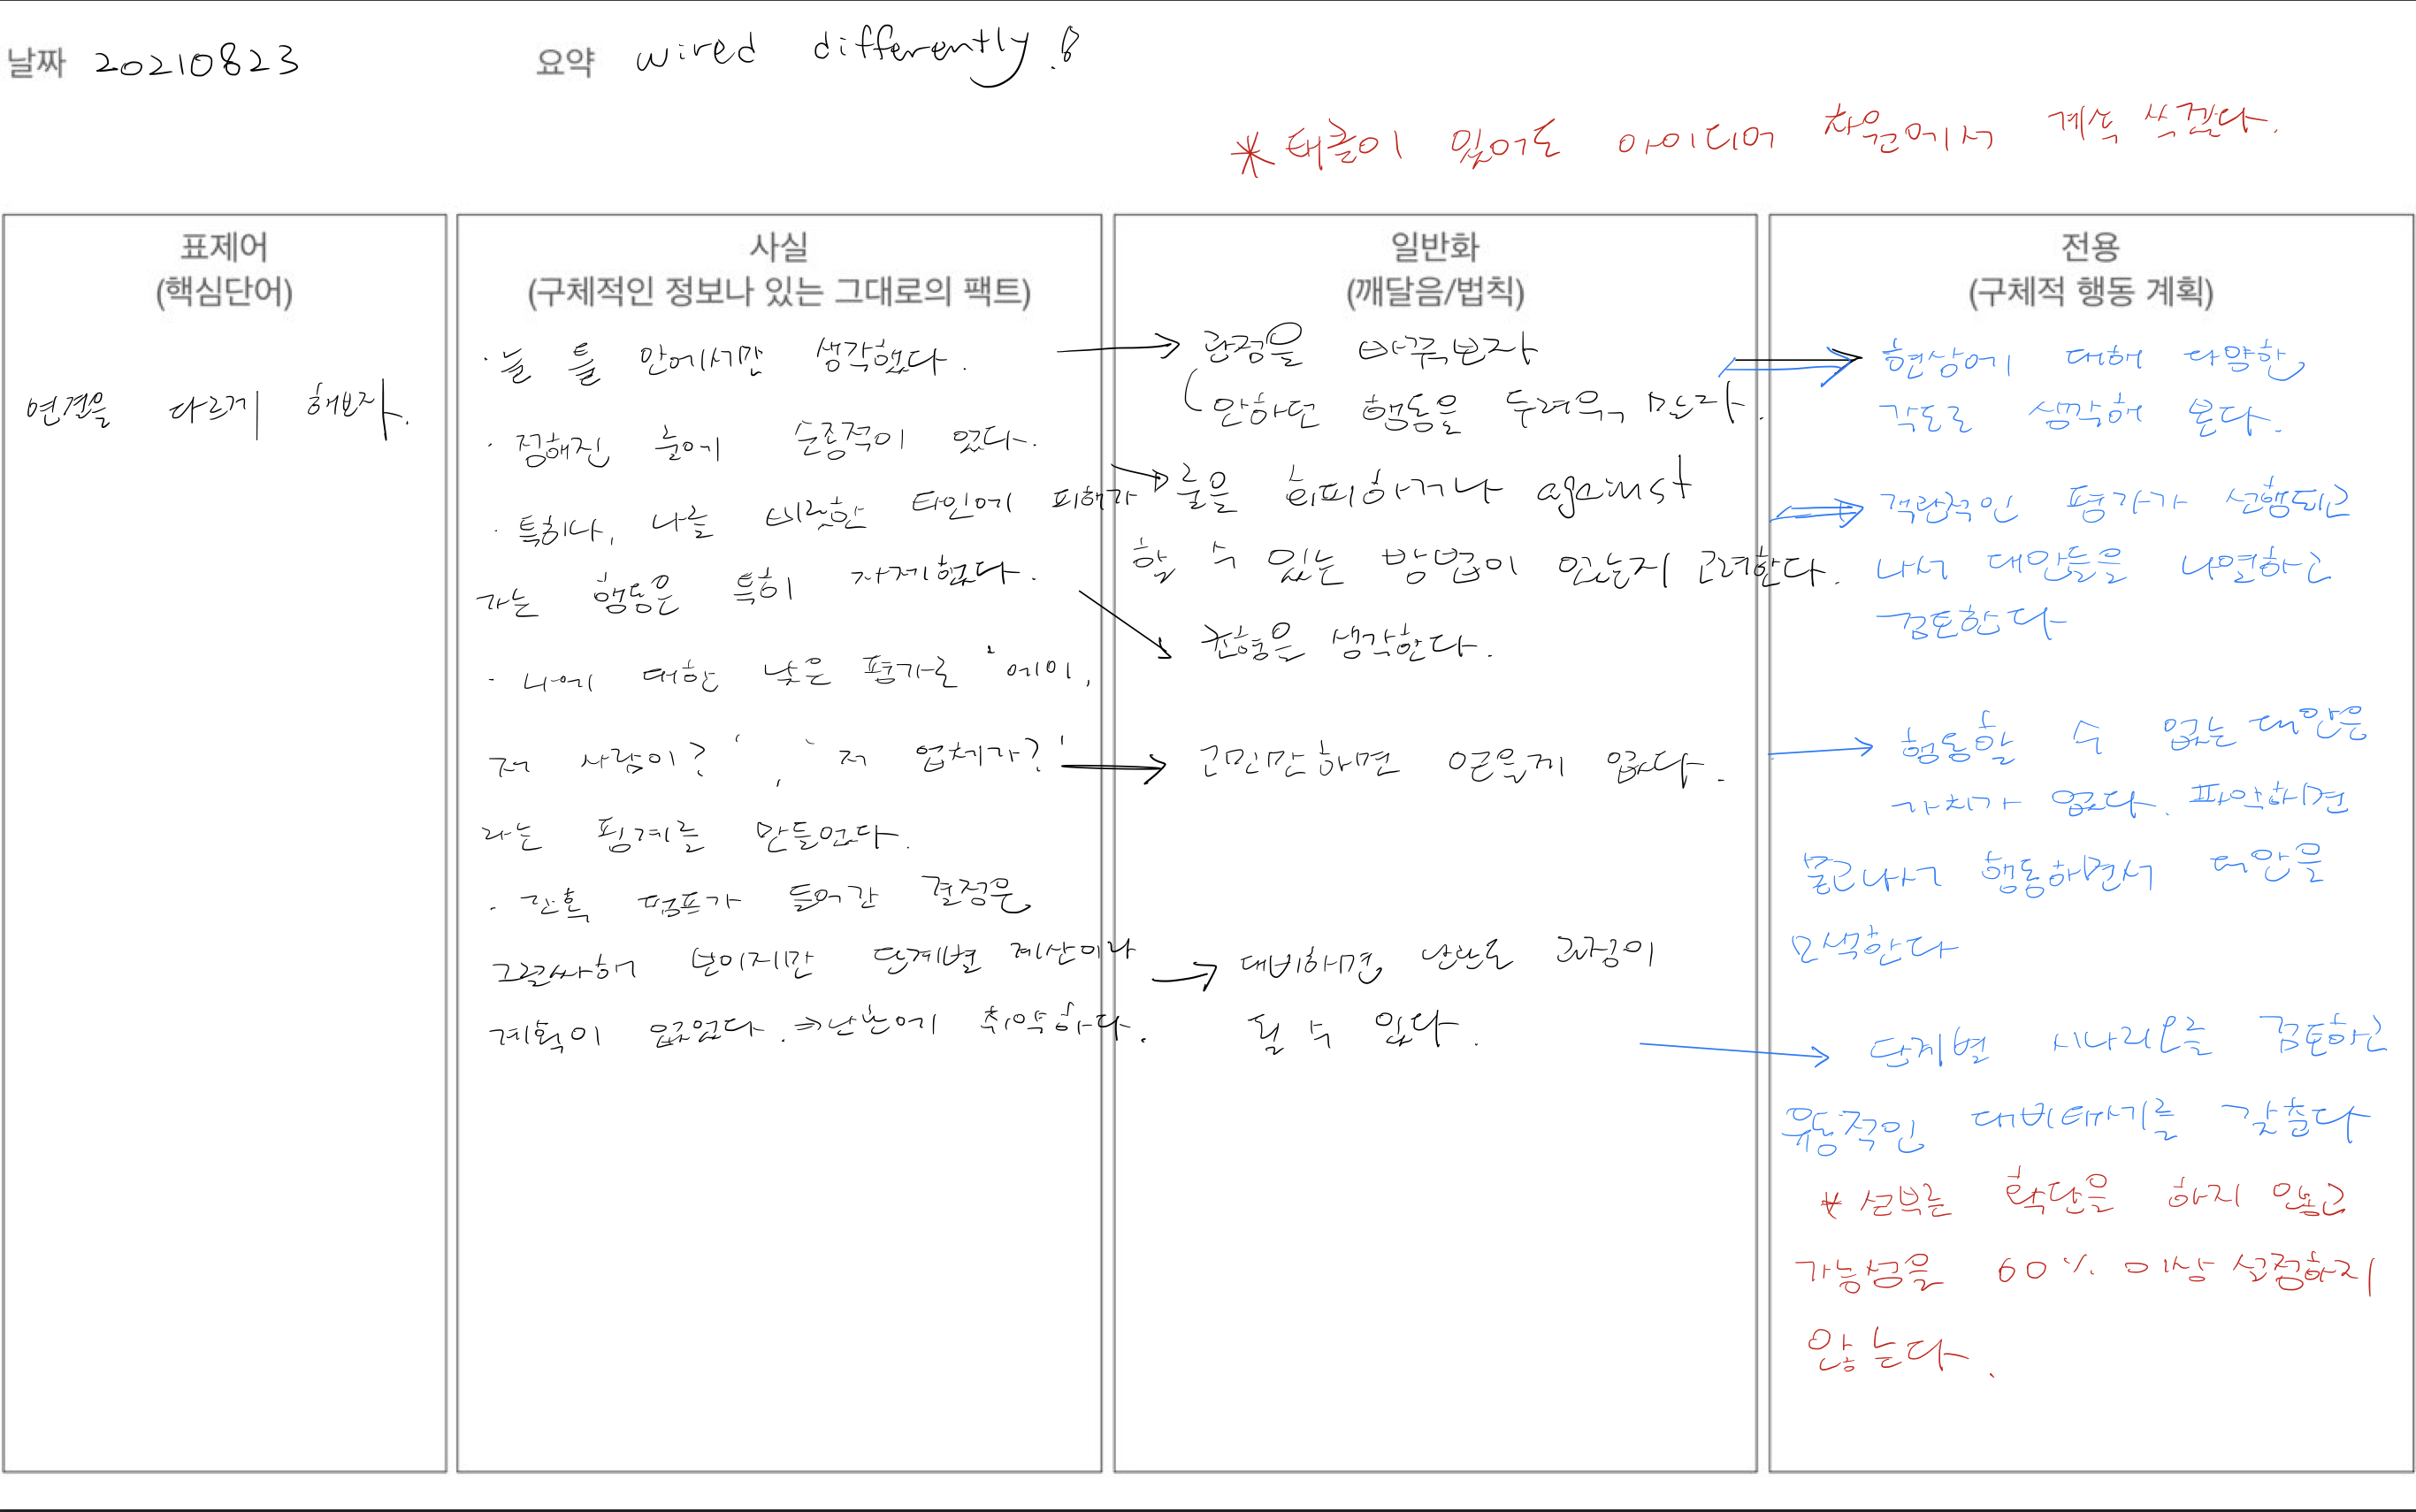 날짜 20210823
요약 wired differently!
* 태클이 있어도 아이디어 차원에서 계속 생각한다.
표제어
(핵심단어)
연결을 다르게 해보자.
사실
(구체적인 정보나 있는 그대로의 팩트)
· 늘 틀 안에서만 생각했다.
· 정해진 룰에 순종적이 었다.
· 특히나, 나를 비롯한 타인에 피해가
가는 행동은 특히 자제했다.
· 나에 대한 낮은 평가로 '에이,
저 사람이?', '저 업체가?'
라는 핑계를 만들었다.
· 간혹 점프가 들어간 결정은
그럴싸해 보이지만 단계별 계산이나
계획이 없었다. ⇒ 난관에 취약하다.
일반화
(깨달음/법칙)
관점을 바꿔보자
안하던 행동을 두려워 말라.
룰을 회피하거나 against
할 수 있는 방법이 있는지 고려한다.
균형을 생각한다.
고민만하면 얻을게 없다.
대비하면, 난관도 과정이
될 수 있다.
전용
(구체적 행동 계획)
현상에 대해 다양한
각도로 생각해 본다.
객관적인 평가가 선행되고
나서 대안들을 나열하고
검토한다
행동할 수 없는 대안은
가치가 없다. 파악하면
물러나서 행동하면서 대안을
모색한다
단계별 시나리오를 검토하고
유동적인 대비태세를 갖춘다
* 섣부른 확단을 하지 않고
가능성을 60% 이상 설정하지
않는다.